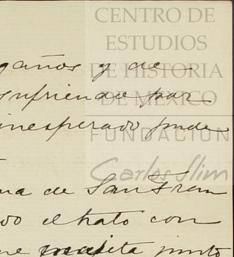 CENTRO DE
ESTUDIOS
DE HISTORIA
DE MÉXICO
FUNDACIÓN
Carlos Slim
gaños y de
sufriendo por
inesperado pude
na de San Fran
do el hato con
maleta junto